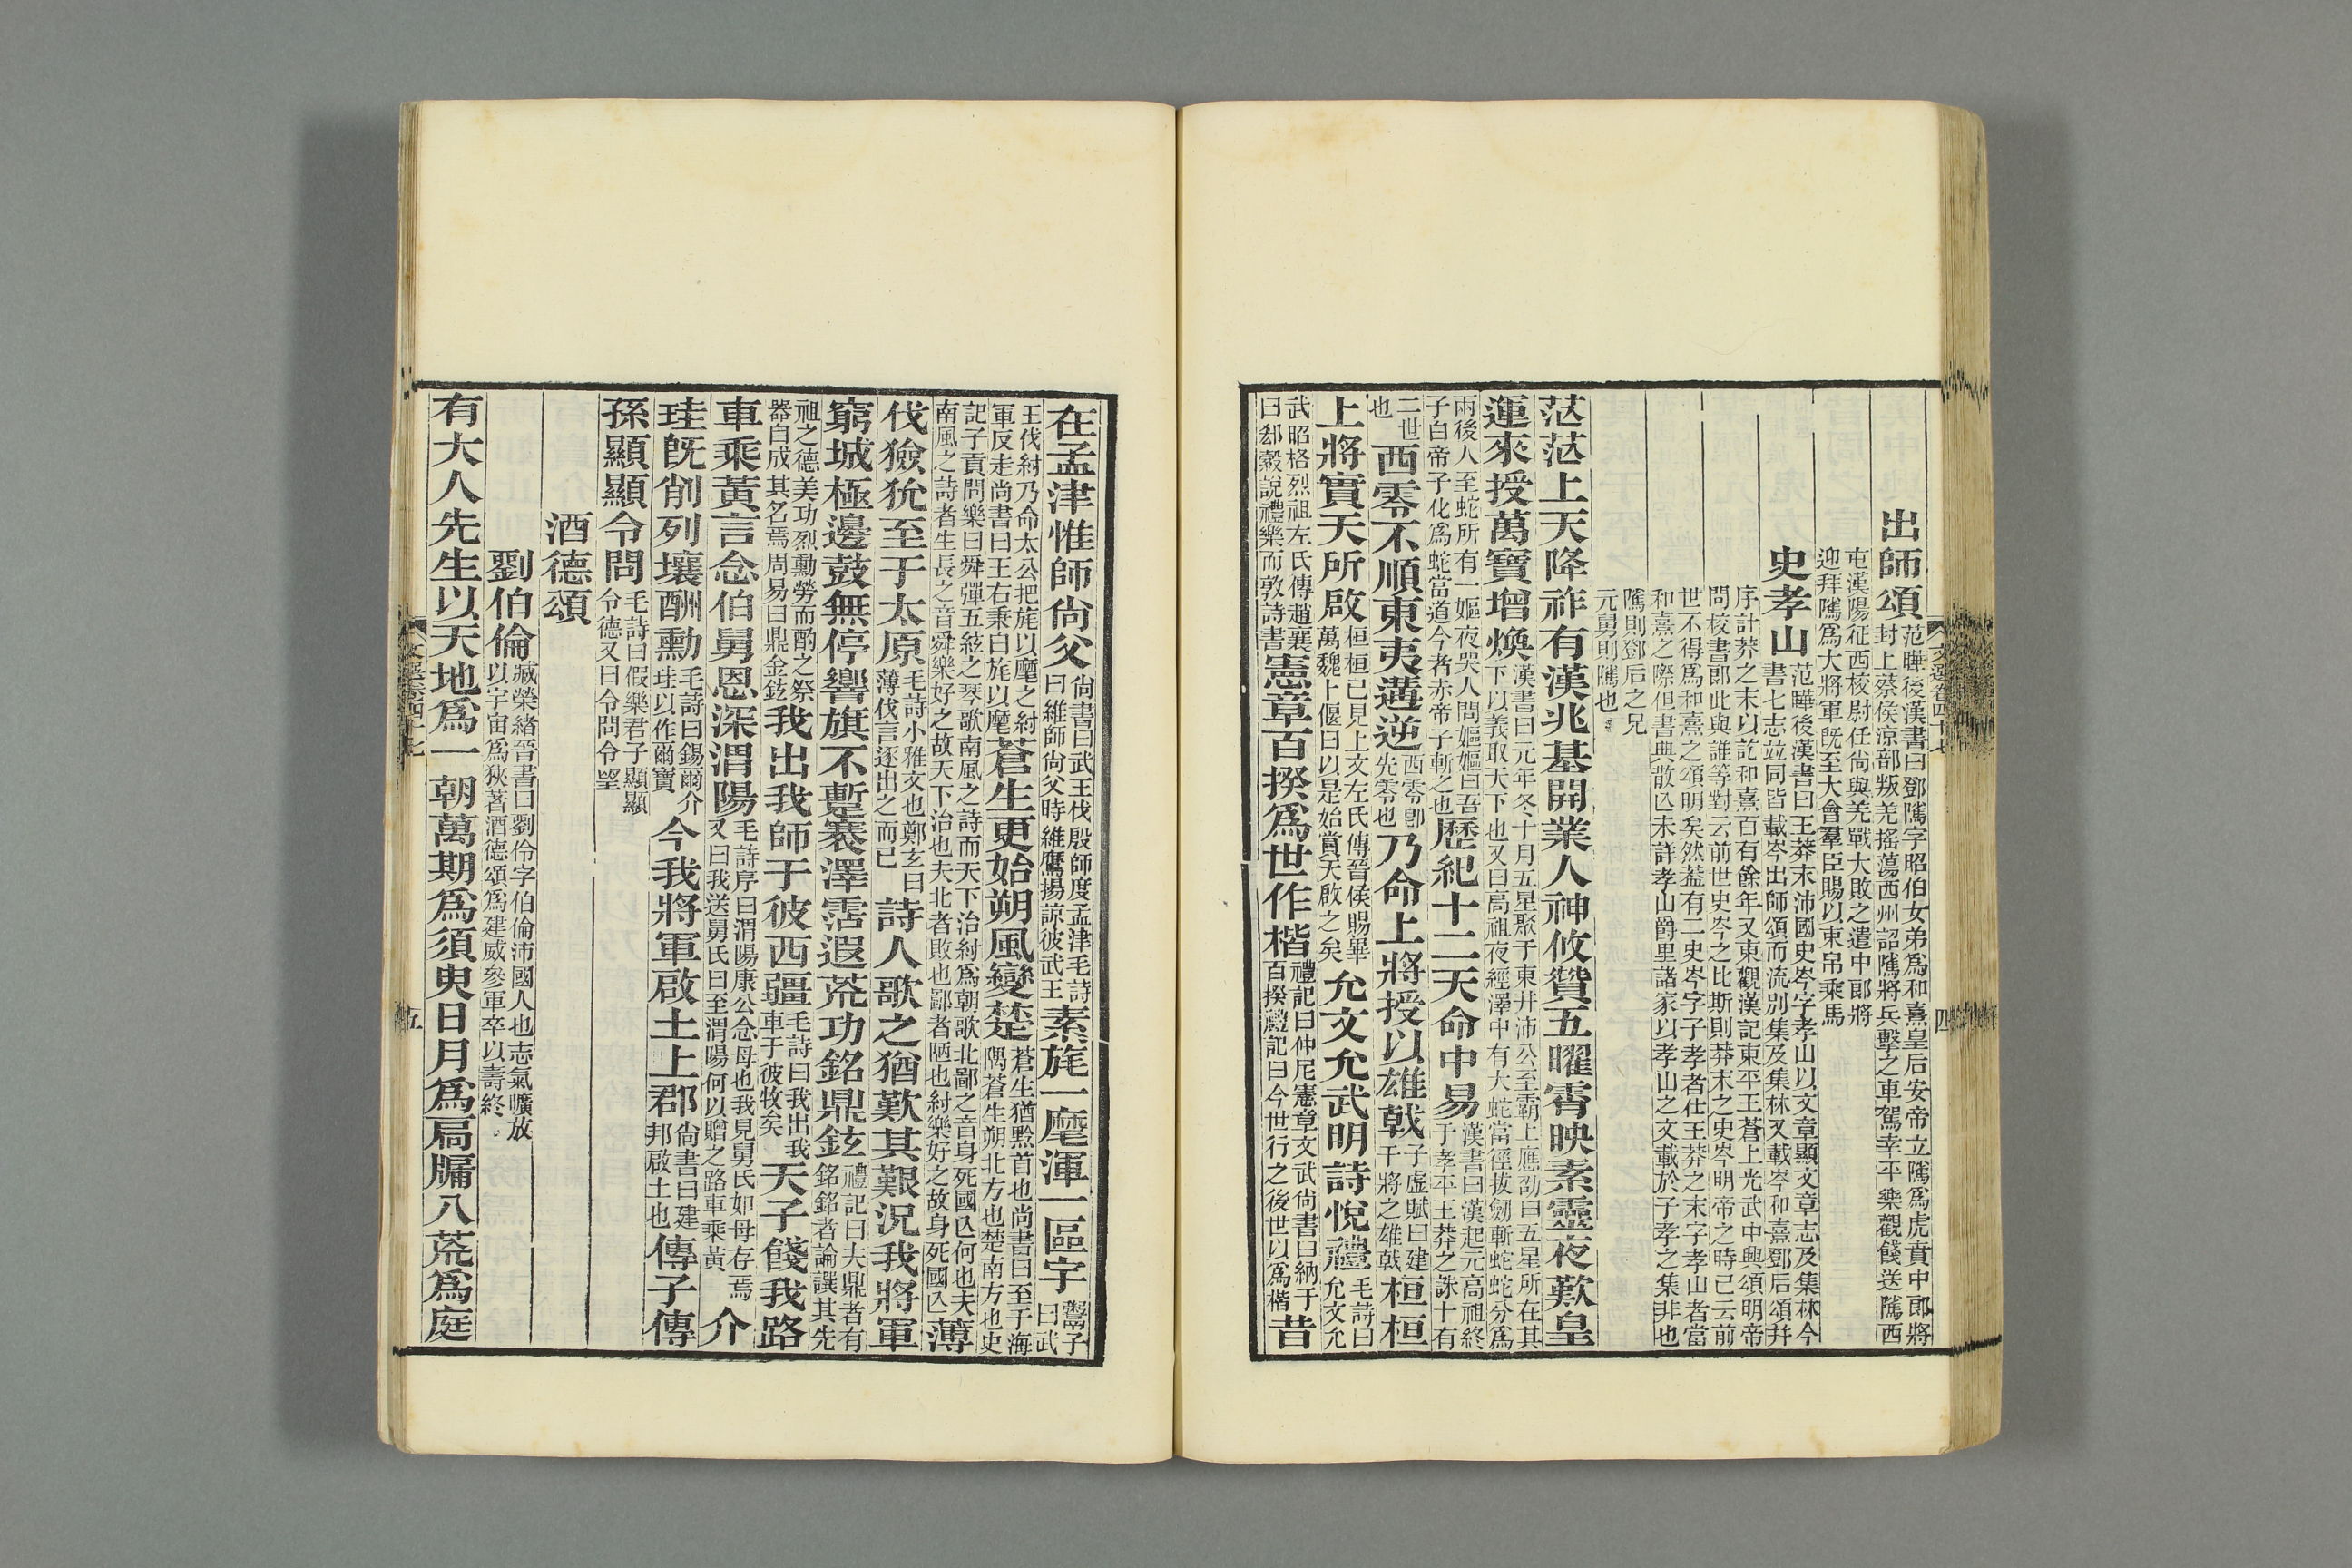 出師頌范曄後漢書曰鄧隲字昭伯女弟爲和熹皇后安帝立隲爲虎賁中郎將封上蔡侯涼部叛羌搖蕩西州詔隲將兵擊之車駕幸平樂觀餞送隲西
屯漢陽征西校尉任尙與羌戰大敗之遣中郎將迎拜隲爲大將軍旣至大會羣臣賜以束帛乘馬
史孝山范曄後漢書曰王莽末沛國史岑字孝山以文章顯文章志及集林今書七志竝同皆載岑出師頌而流別集及集林又載岑和熹鄧后頌幷
序計莽之末以訖和熹百有餘年又東觀漢記東平王蒼上光武中興頌明帝問校書郎此與誰等對云前世史岑之比斯則莽末之史岑明帝之時已云前
世不得爲和熹之頌明矣然蓋有二史岑字子孝者仕王莽之末字孝山者當和熹之際但書典散亾未詳孝山爵里諸家以孝山之文載於子孝之集非也
隲則鄧后之兄元舅則隲也
茫茫上天降祚有漢兆基開業人神攸贊五曜霄映素靈夜歎皇
運來授萬寶增煥漢書曰元年冬十月五星聚于東井沛公至霸上應劭曰五星所在其下以義取天下也又曰高祖夜經澤中有大蛇當徑拔劒斬蛇蛇分爲
兩後人至蛇所有一嫗夜哭人問嫗嫗曰吾子白帝子化爲蛇當道今者赤帝子斬之也歷紀十二天命中易漢書曰漢起元高祖終于孝平王莽之誅十有
二世也西零不順東夷遘逆西零卽先零也乃命上將授以雄戟子虛賦曰建干將之雄戟桓桓
上將實天所啟桓桓已見上文左氏傳晉侯賜畢萬魏卜偃曰以是始賞天啟之矣允文允武明詩悅禮毛詩曰允文允
武昭格烈祖左氏傳趙襄曰郤縠說禮樂而敦詩書憲章百揆爲世作楷禮記曰仲尼憲章文武尙書曰納于百揆禮記曰今世行之後世以爲楷昔
文選卷四十七
四
在孟津惟師尙父尙書曰武王伐殷師度孟津毛詩曰維師尙父時維鷹揚諒彼武王素旄一麾渾一區宇鬻子曰武
王伐紂乃命太公把旄以麾之紂軍反走尙書曰王右秉白旄以麾蒼生更始朔風變楚蒼生猶黔首也尙書曰至于海隅蒼生朔北方也楚南方也史
記子貢問樂曰舜彈五絃之琴歌南風之詩而天下治紂爲朝歌北鄙之音身死國亾何也夫南風之詩者生長之音舜樂好之故天下治也夫北者敗也鄙者陋也紂樂好之故身死國亾薄
伐獫狁至于太原毛詩小雅文也鄭玄曰薄伐言逐出之而已詩人歌之猶歎其艱況我將軍
窮城極邊鼓無停響旗不蹔褰澤霑遐荒功銘鼎鉉禮記曰夫鼎者有銘銘者論譔其先
祖之德美功烈勳勞而酌之祭器自成其名焉周易曰鼎金鉉我出我師于彼西疆毛詩曰我出我車于彼牧矣天子餞我路
車乘黃言念伯舅恩深渭陽毛詩序曰渭陽康公念母也我見舅氏如母存焉又曰我送舅氏曰至渭陽何以贈之路車乘黃介
珪旣削列壤酬勳毛詩曰錫爾介珪以作爾寶今我將軍啟土上郡尙書曰建邦啟土也傳子傳
孫顯顯令問毛詩曰假樂君子顯顯令德又曰令問令望
酒德頌
劉伯倫臧榮緒晉書曰劉伶字伯倫沛國人也志氣曠放以宇宙爲狹著酒德頌爲建威參軍卒以壽終
有大人先生以天地爲一朝萬期爲須臾日月爲扃牖八荒爲庭
文選卷四十七
五